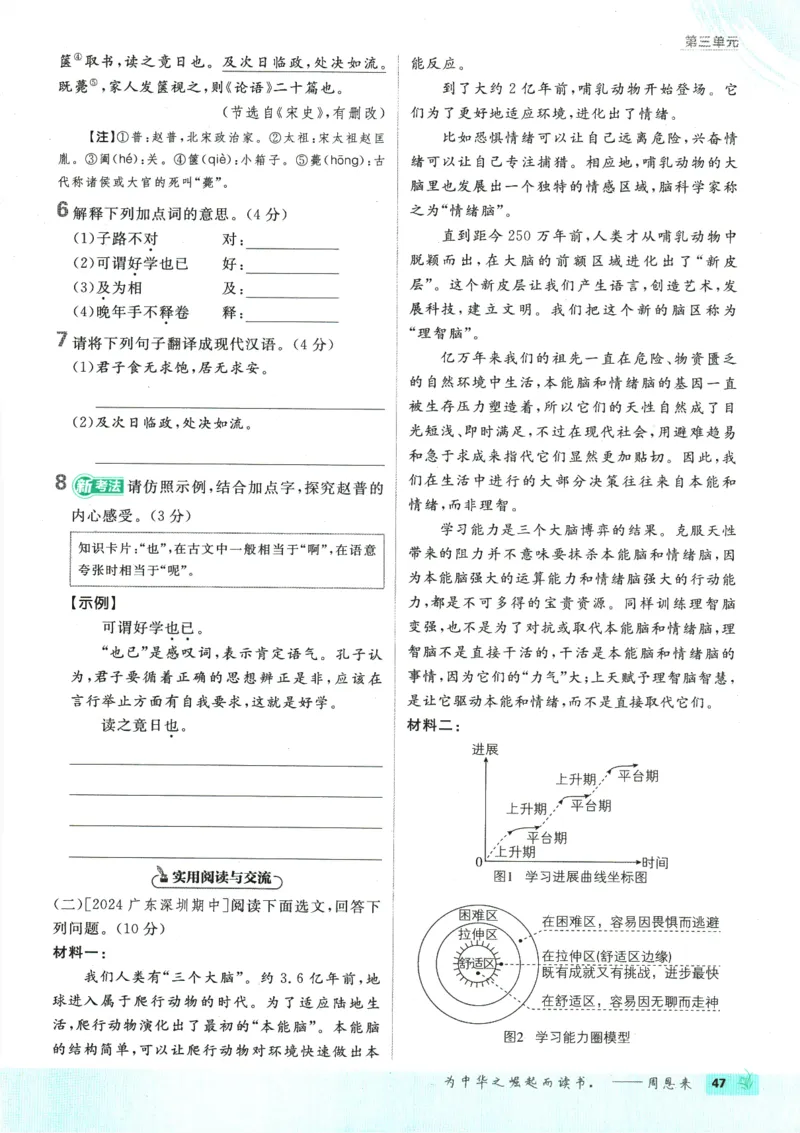 第三单元
箧④取书,读之竟日也。及次日临政,处决如流。
既薨⑤,家人发箧视之,则《论语》二十篇也。
(节选自《宋史》,有删改)
【注】①普:赵普,北宋政治家。②太祖:宋太祖赵匡
胤。③阖(hé):关。④箧(qiè):小箱子。⑤薨(hōng):古
代称诸侯或大官的死叫“薨”。
6 解释下列加点词的意思。(4分)
(1)子路不对 对:
(2)可谓好学也已 好:
(3)及为相 及:
(4)晚年手不释卷 释:
7 请将下列句子翻译成现代汉语。(4分)
(1)君子食无求饱,居无求安。
(2)及次日临政,处决如流。
8 新考法 请仿照示例,结合加点字,探究赵普的
内心感受。(3分)
知识卡片:“也”,在古文中一般相当于“啊”,在语意
夸张时相当于“呢”。
【示例】
可谓好学也已。
“也已”是感叹词,表示肯定语气。孔子认
为,君子要循着正确的思想辨正是非,应该在
言行举止方面有自我要求,这就是好学。
读之竟日也。
实用阅读与交流
(二)[2024广东深圳期中]阅读下面选文,回答下
列问题。(10分)
材料一:
我们人类有“三个大脑”。约3.6亿年前,地
球进入属于爬行动物的时代。为了适应陆地生
活,爬行动物演化出了最初的“本能脑”。本能脑
的结构简单,可以让爬行动物对环境快速做出本
能反应。
到了大约2亿年前,哺乳动物开始登场。它
们为了更好地适应环境,进化出了情绪。
比如恐惧情绪可以让自己远离危险,兴奋情
绪可以让自己专注捕猎。相应地,哺乳动物的大
脑里也发展出一个独特的情感区域,脑科学家称
之为“情绪脑”。
直到距今250万年前,人类才从哺乳动物中
脱颖而出,在大脑的前额区域进化出了“新皮
层”。这个新皮层让我们产生语言,创造艺术,发
展科技,建立文明。我们把这个新的脑区称为
“理智脑”。
亿万年来我们的祖先一直在危险、物资匮乏
的自然环境中生活,本能脑和情绪脑的基因一直
被生存压力塑造着,所以它们的天性自然成了目
光短浅、即时满足,不过在现代社会,用避难趋易
和急于求成来指代它们显然更加贴切。因此,我
们在生活中进行的大部分决策往往来自本能和
情绪,而非理智。
学习能力是三个大脑博弈的结果。克服天性
带来的阻力并不意味要抹杀本能脑和情绪脑,因
为本能脑强大的运算能力和情绪脑强大的行动能
力,都是不可多得的宝贵资源。同样训练理智脑
变强,也不是为了对抗或取代本能脑和情绪脑,理
智脑不是直接干活的,干活是本能脑和情绪脑的
事情,因为它们的“力气”大;上天赋予理智脑智慧,
是让它驱动本能和情绪,而不是直接取代它们。
材料二:
进展
上升期 平台期
上升期 平台期
平台期
上升期
0 时间
图1 学习进展曲线坐标图
困难区
拉伸区
舒适区
在困难区，容易因畏惧而逃避
在拉伸区(舒适区边缘)
既有成就又有挑战，进步最快
在舒适区，容易因无聊而走神
图2 学习能力圈模型
为中华之崛起而读书。——周恩来 47